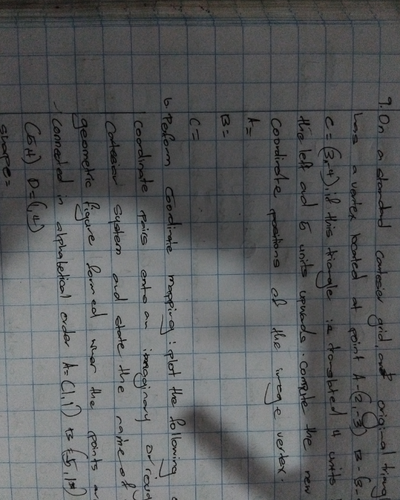 9. On a standard cartesian grid, an original triang
has a vertex located at point A-(2,-3) B-(-
C=(3,-4), if this triangle is translated 4 units
the left and 5 units upwards. compute the new
coordinate positions of the image vertex.
A=
B=
C=
b. Perform coordinate mapping: plot the following
coordinate pairs onto an imaginary
Cartesian system and state the name of
geometric figure formed when the points a
connected in alphabetical order A=(1,1) B=(5,1)
(5,4) D=(1,4)
shape=